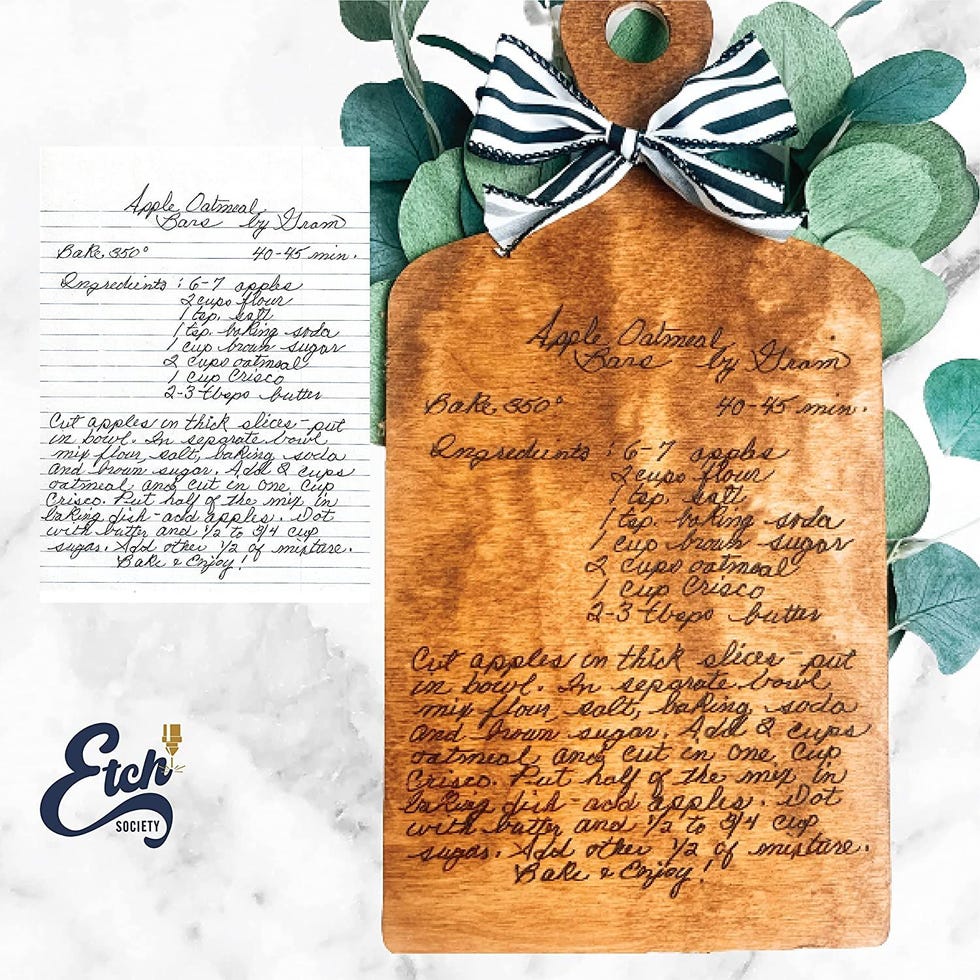 Apple Oatmeal
Bars by Gram
Bake 350° 40-45 min.
Ingredients : 6-7 apples
2 cups flour
1 tsp. salt
1 tsp. baking soda
1 cup brown sugar
2 cups oatmeal
1 cup Crisco
2-3 tbsps butter
Cut apples in thick slices - put
in bowl. In separate bowl
mix flour, salt, baking soda
and brown sugar. Add 2 cups
oatmeal and cut in one cup
Crisco. Put half of the mix in
baking dish - add apples. Dot
with butter and 1/2 to 3/4 cup
sugar. Add other 1/2 of mixture.
Bake & Enjoy!
Etch
SOCIETY
Apple Oatmeal
Bars by Gram
Bake 350° 40-45 min.
Ingredients : 6-7 apples
2 cups flour
1 tsp. salt
1 tsp. baking soda
1 cup brown sugar
2 cups oatmeal
1 cup Crisco
2-3 tbsps butter
Cut apples in thick slices - put
in bowl. In separate bowl
mix flour, salt, baking soda
and brown sugar. Add 2 cups
oatmeal and cut in one cup
Crisco. Put half of the mix in
baking dish - add apples. Dot
with butter and 1/2 to 3/4 cup
sugar. Add other 1/2 of mixture.
Bake & Enjoy!